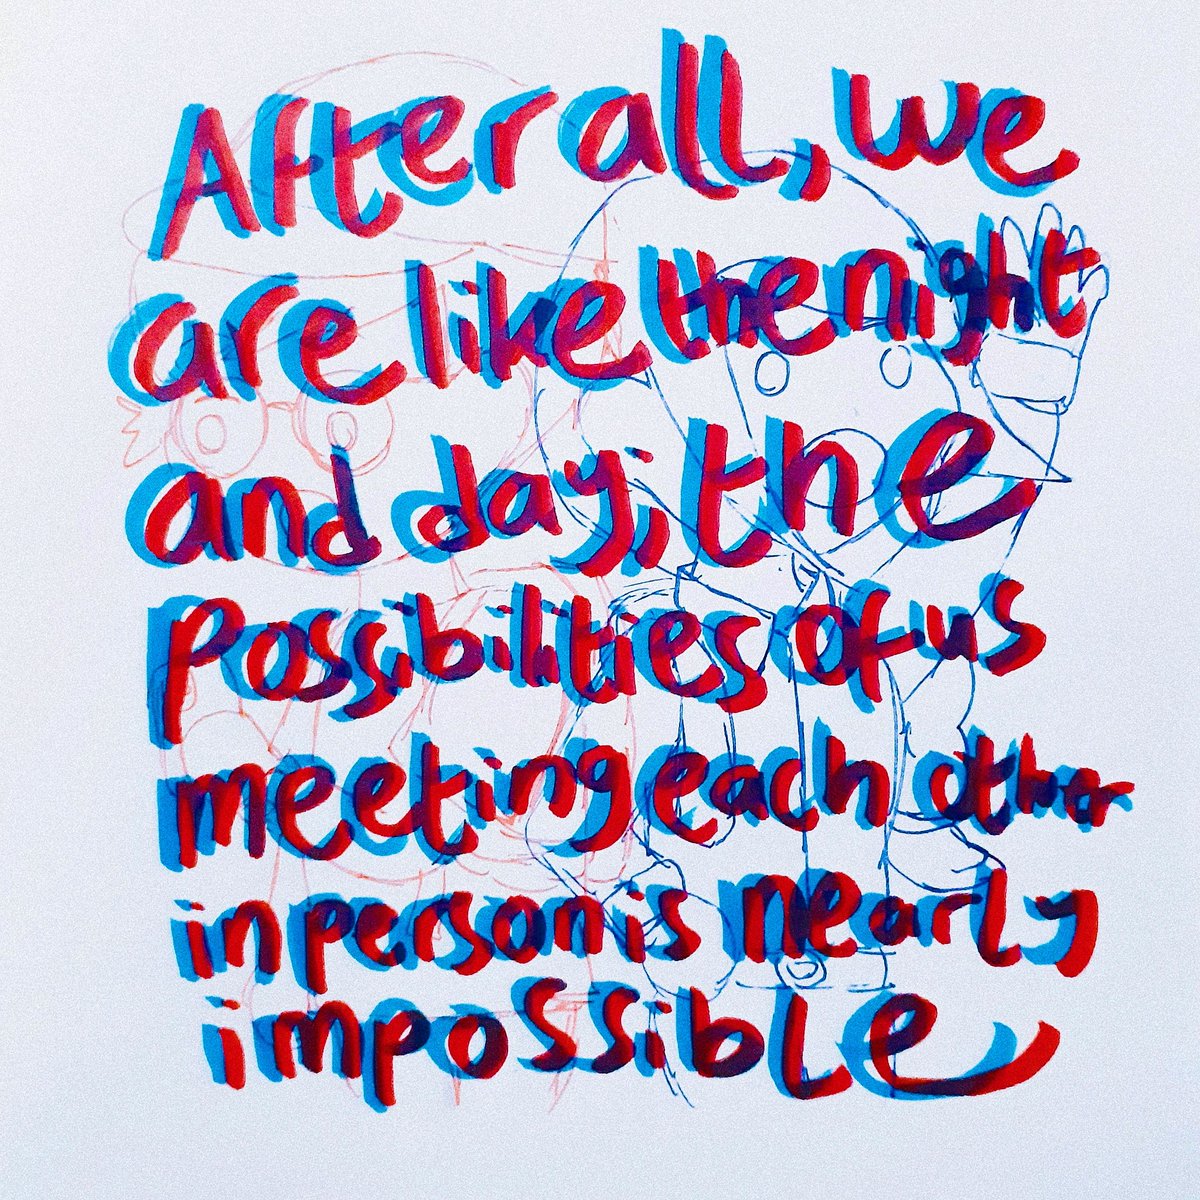 After all, we
are like the night
and day, the
possibilities of us
meeting each other
in person is nearly
impossible